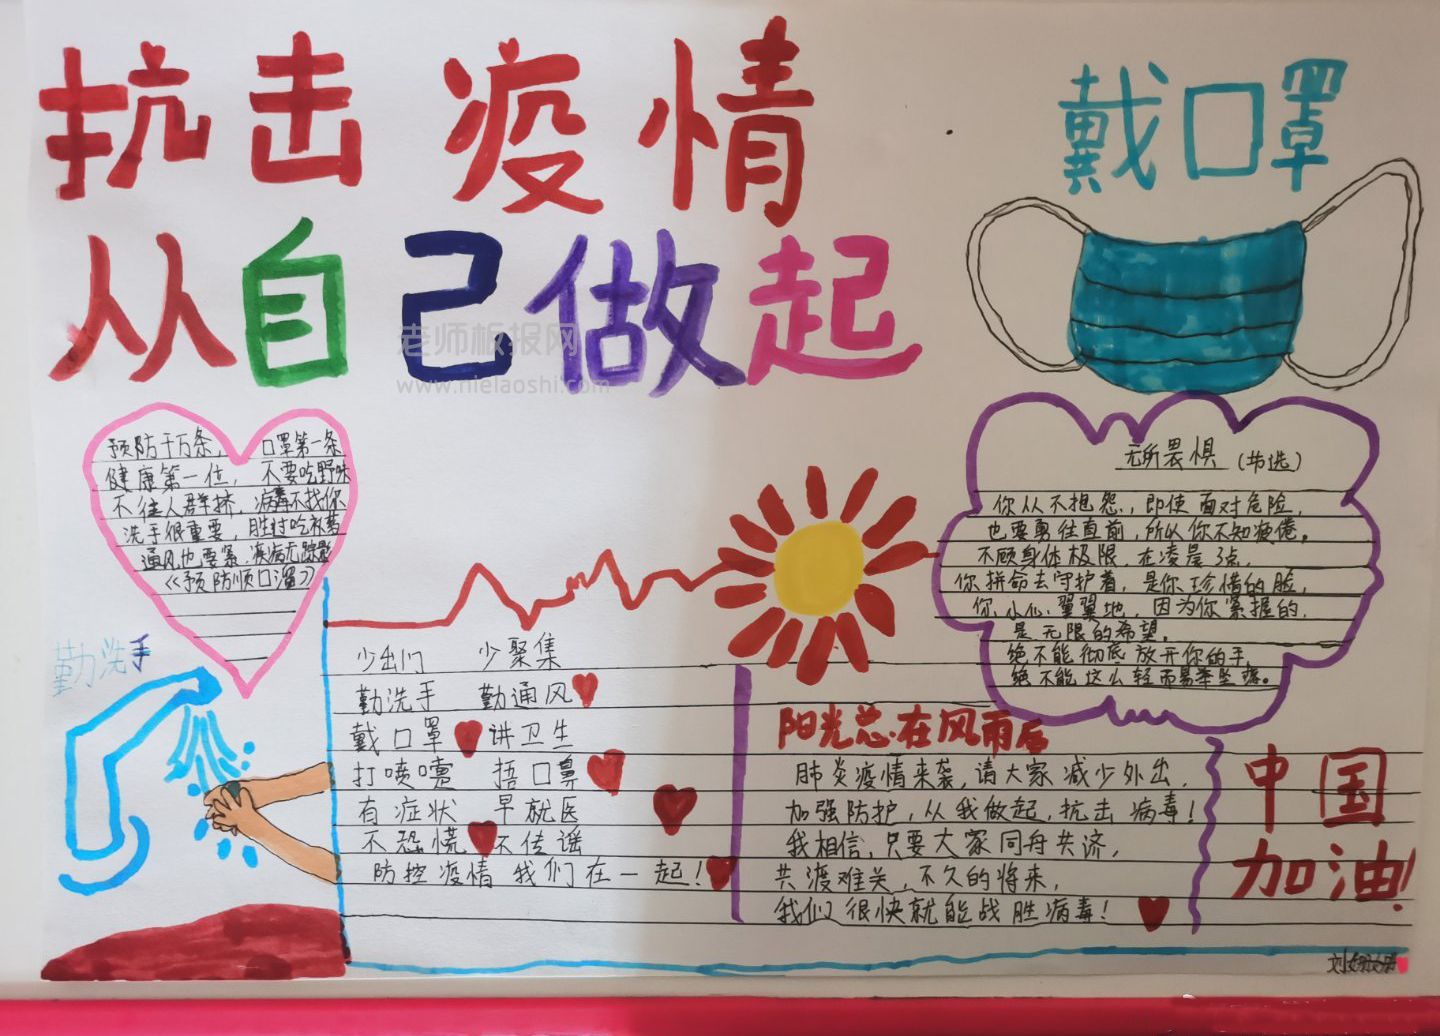 抗击疫情
从自己做起
戴口罩
老师板报网
预防千万条, 口罩第一条
健康第一位, 不要吃野味
不往人群挤, 病毒不找你
洗手很重要, 胜过吃补药
通风也要紧, 疾病无踪影
《预防顺口溜》
无所畏惧 (节选)
你从不抱怨, 即使面对危险,
也要勇往直前, 所以你不知疲倦。
不顾身体极限, 在凌晨3点,
你拼命去守护着, 是你珍惜的脸,
你小心翼翼地, 因为你紧握的,
是无限的希望。
绝不能彻底放开你的手,
绝不能这么轻而易举坠落。
勤洗手
少出门 少聚集
勤洗手 勤通风
戴口罩 讲卫生
打喷嚏 捂口鼻
有症状 早就医
不恐慌 不传谣
防控疫情 我们在一起!
阳光总在风雨后
肺炎疫情来袭, 请大家减少外出,
加强防护, 从我做起, 抗击病毒!
我相信, 只要大家同舟共济,
共渡难关, 不久的将来,
我们很快就能战胜病毒!
中国
加油!